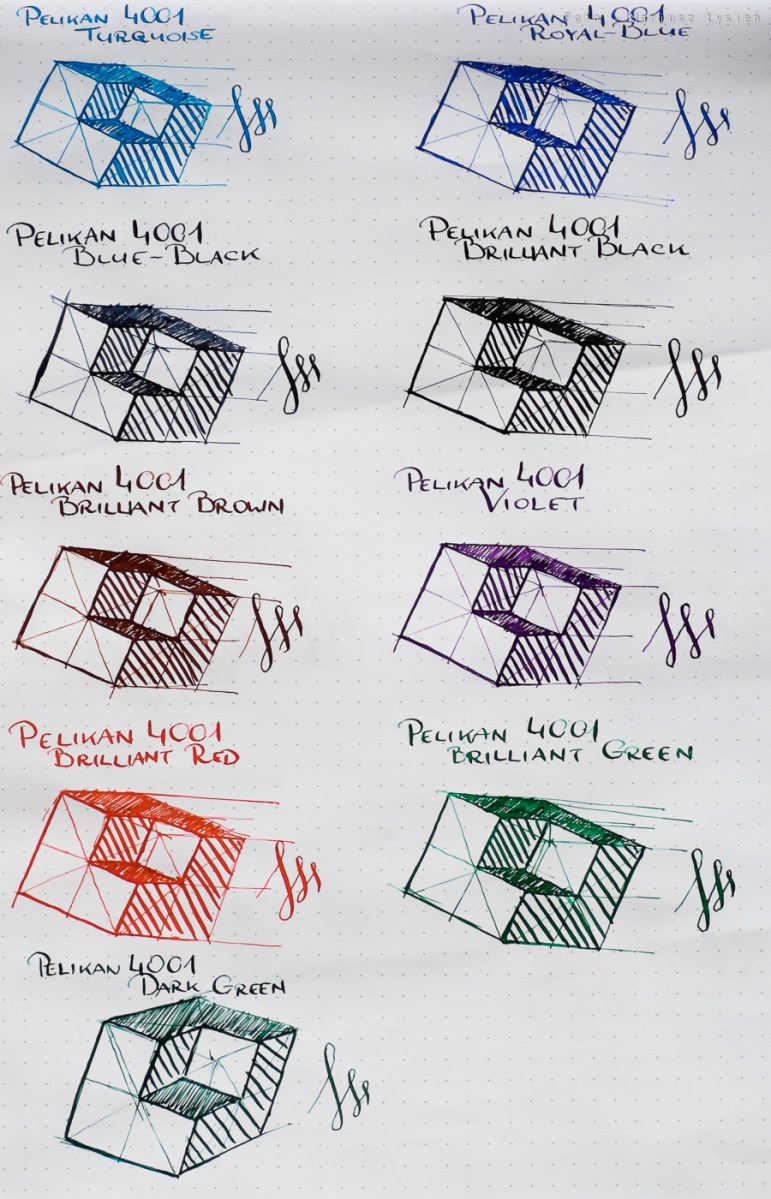 PELIKAN 4001
TURQUOISE
PELIKAN 4001
ROYAL-BLUE
PELIKAN 4001
BLUE-BLACK
PELIKAN 4001
BRILLIANT BLACK
PELIKAN 4001
BRILLIANT BROWN
PELIKAN 4001
VIOLET
PELIKAN 4001
BRILLIANT RED
PELIKAN 4001
BRILLIANT GREEN
PELIKAN 4001
DARK GREEN